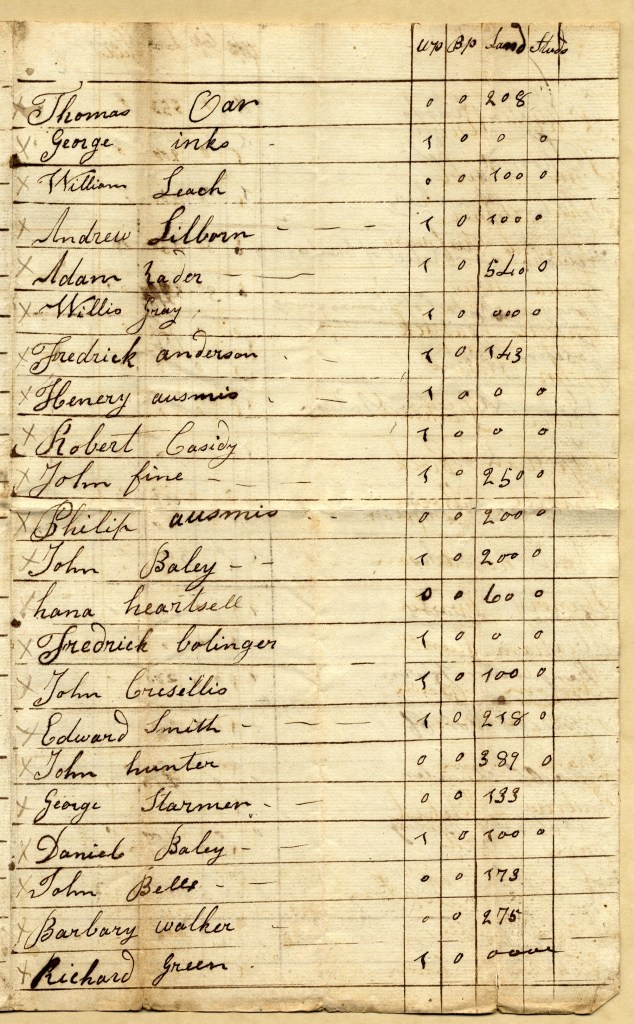 Wp Bp Land Studs
x Thomas Oar 0 0 208
x George inks - 1 0 0 0
x William Leach 0 0 100 0
x Andrew Lilborn - - - 1 0 100 0
x Adam Rader - - - 1 0 540 0
x Willis Gray 1 0 000 0
x Fredrick anderson - - 1 0 143
x Henery ausmis - - 1 0 0 0
x Robert Casidy 1 0 0 0
x John fine - - 1 0 250 0
x Philip ausmis - 0 0 200 0
x John Baley - - 1 0 200 0
hana heartsell 0 0 60 0
x Fredrick Colinger 1 0 0 0
x John Cresellis 1 0 100 0
x Edward Smith - - - 1 0 218 0
x John hunter 0 0 389 0
x George Starmer - - 0 0 133
x Daniel Baley - - 1 0 100 0
x John Bell - 0 0 173
x Barbary walker - 0 0 275
x Richard Green - 1 0 0000